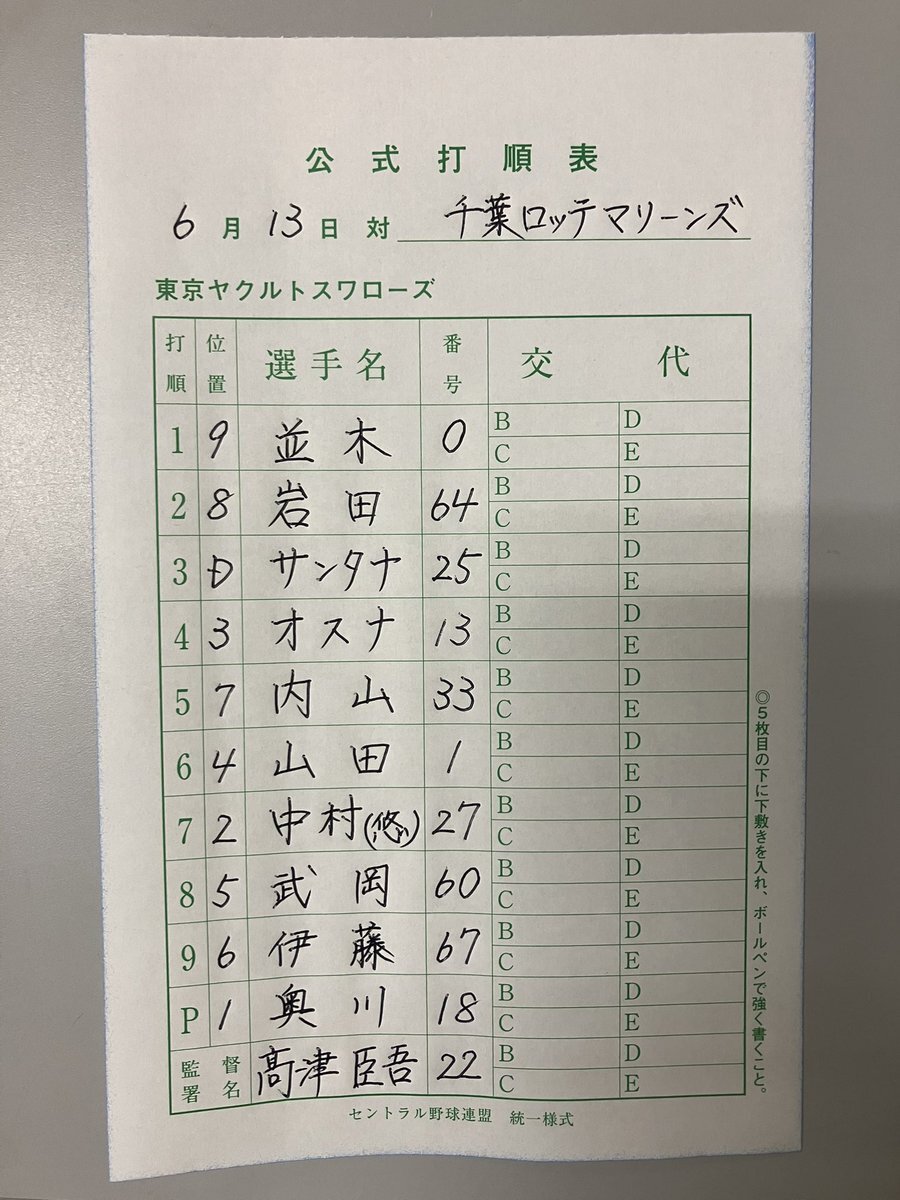 公式打順表
6月13日 対 千葉ロッテマリーンズ
東京ヤクルトスワローズ
打順 位置 選手名 番号 交代
1 9 並木 0 B D
C E
2 8 岩田 64 B D
C E
3 D サンタナ 25 B D
C E
4 3 オスナ 13 B D
C E
5 7 内山 33 B D
C E
6 4 山田 1 B D
C E
7 2 中村(悠) 27 B D
C E
8 5 武岡 60 B D
C E
9 6 伊藤 67 B D
C E
P 1 奥川 18 B D
C E
監督署名 髙津臣吾 22 B D
C E
セントラル野球連盟 統一様式
◎5枚目の下に下敷きを入れ、ボールペンで強く書くこと。